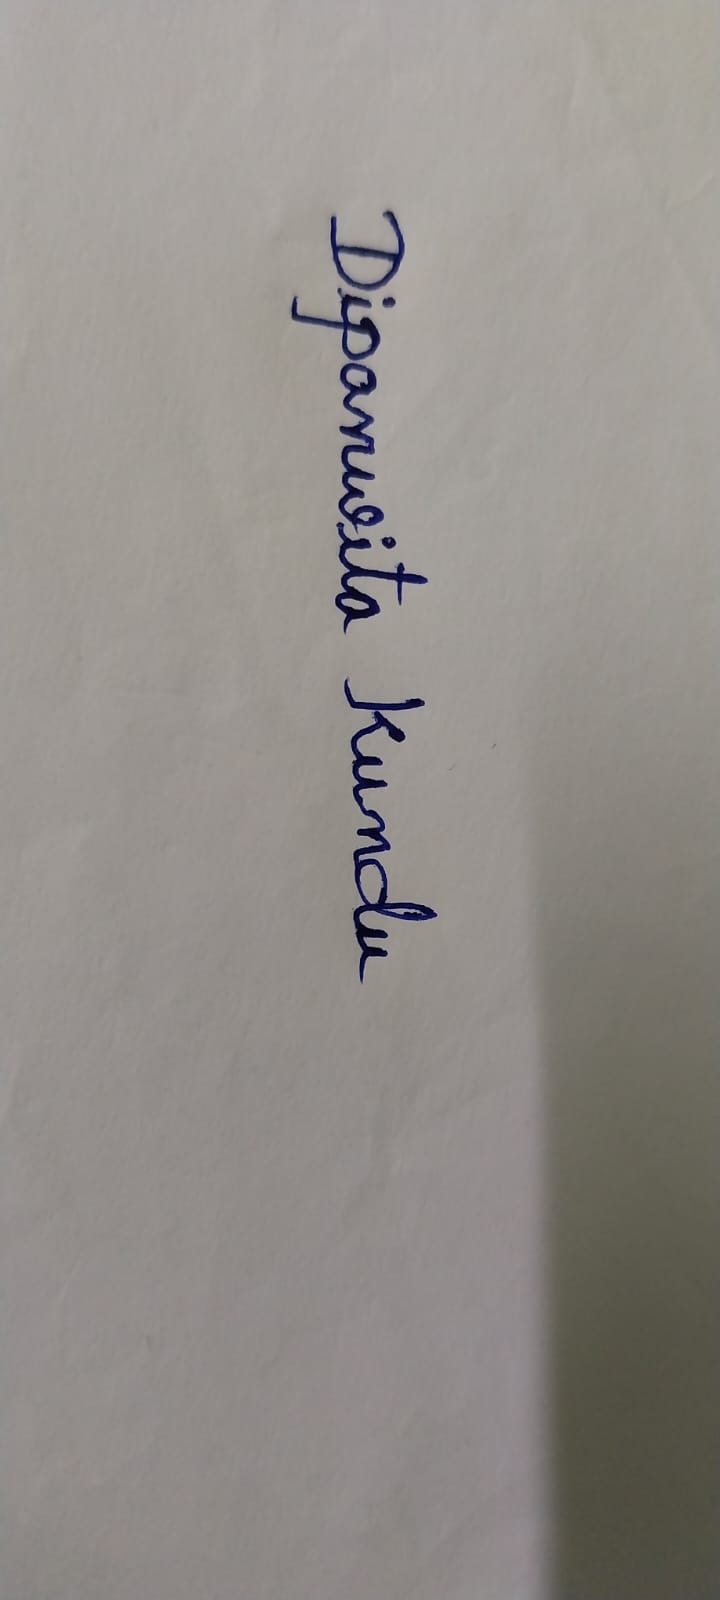 Dipanwita Kundu